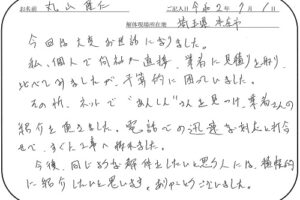 お名前 丸山 ご記入日 令和2年9月1日
解体現場所在地 埼玉県
今回は大変お世話になりました。
私、個人で何社へ直接、業者に見積りを取り、
比べてみましたが、予算的に困っていました。
その折、ネットで"あんしん"さんを見つけ、業者さんの
紹介を受けました。電話での迅速な対応と打合
せ、すぐ工事へ
今後、同じような解体をしたいと思う人には、積極的
に紹介したいと思います。ありがとうございました。